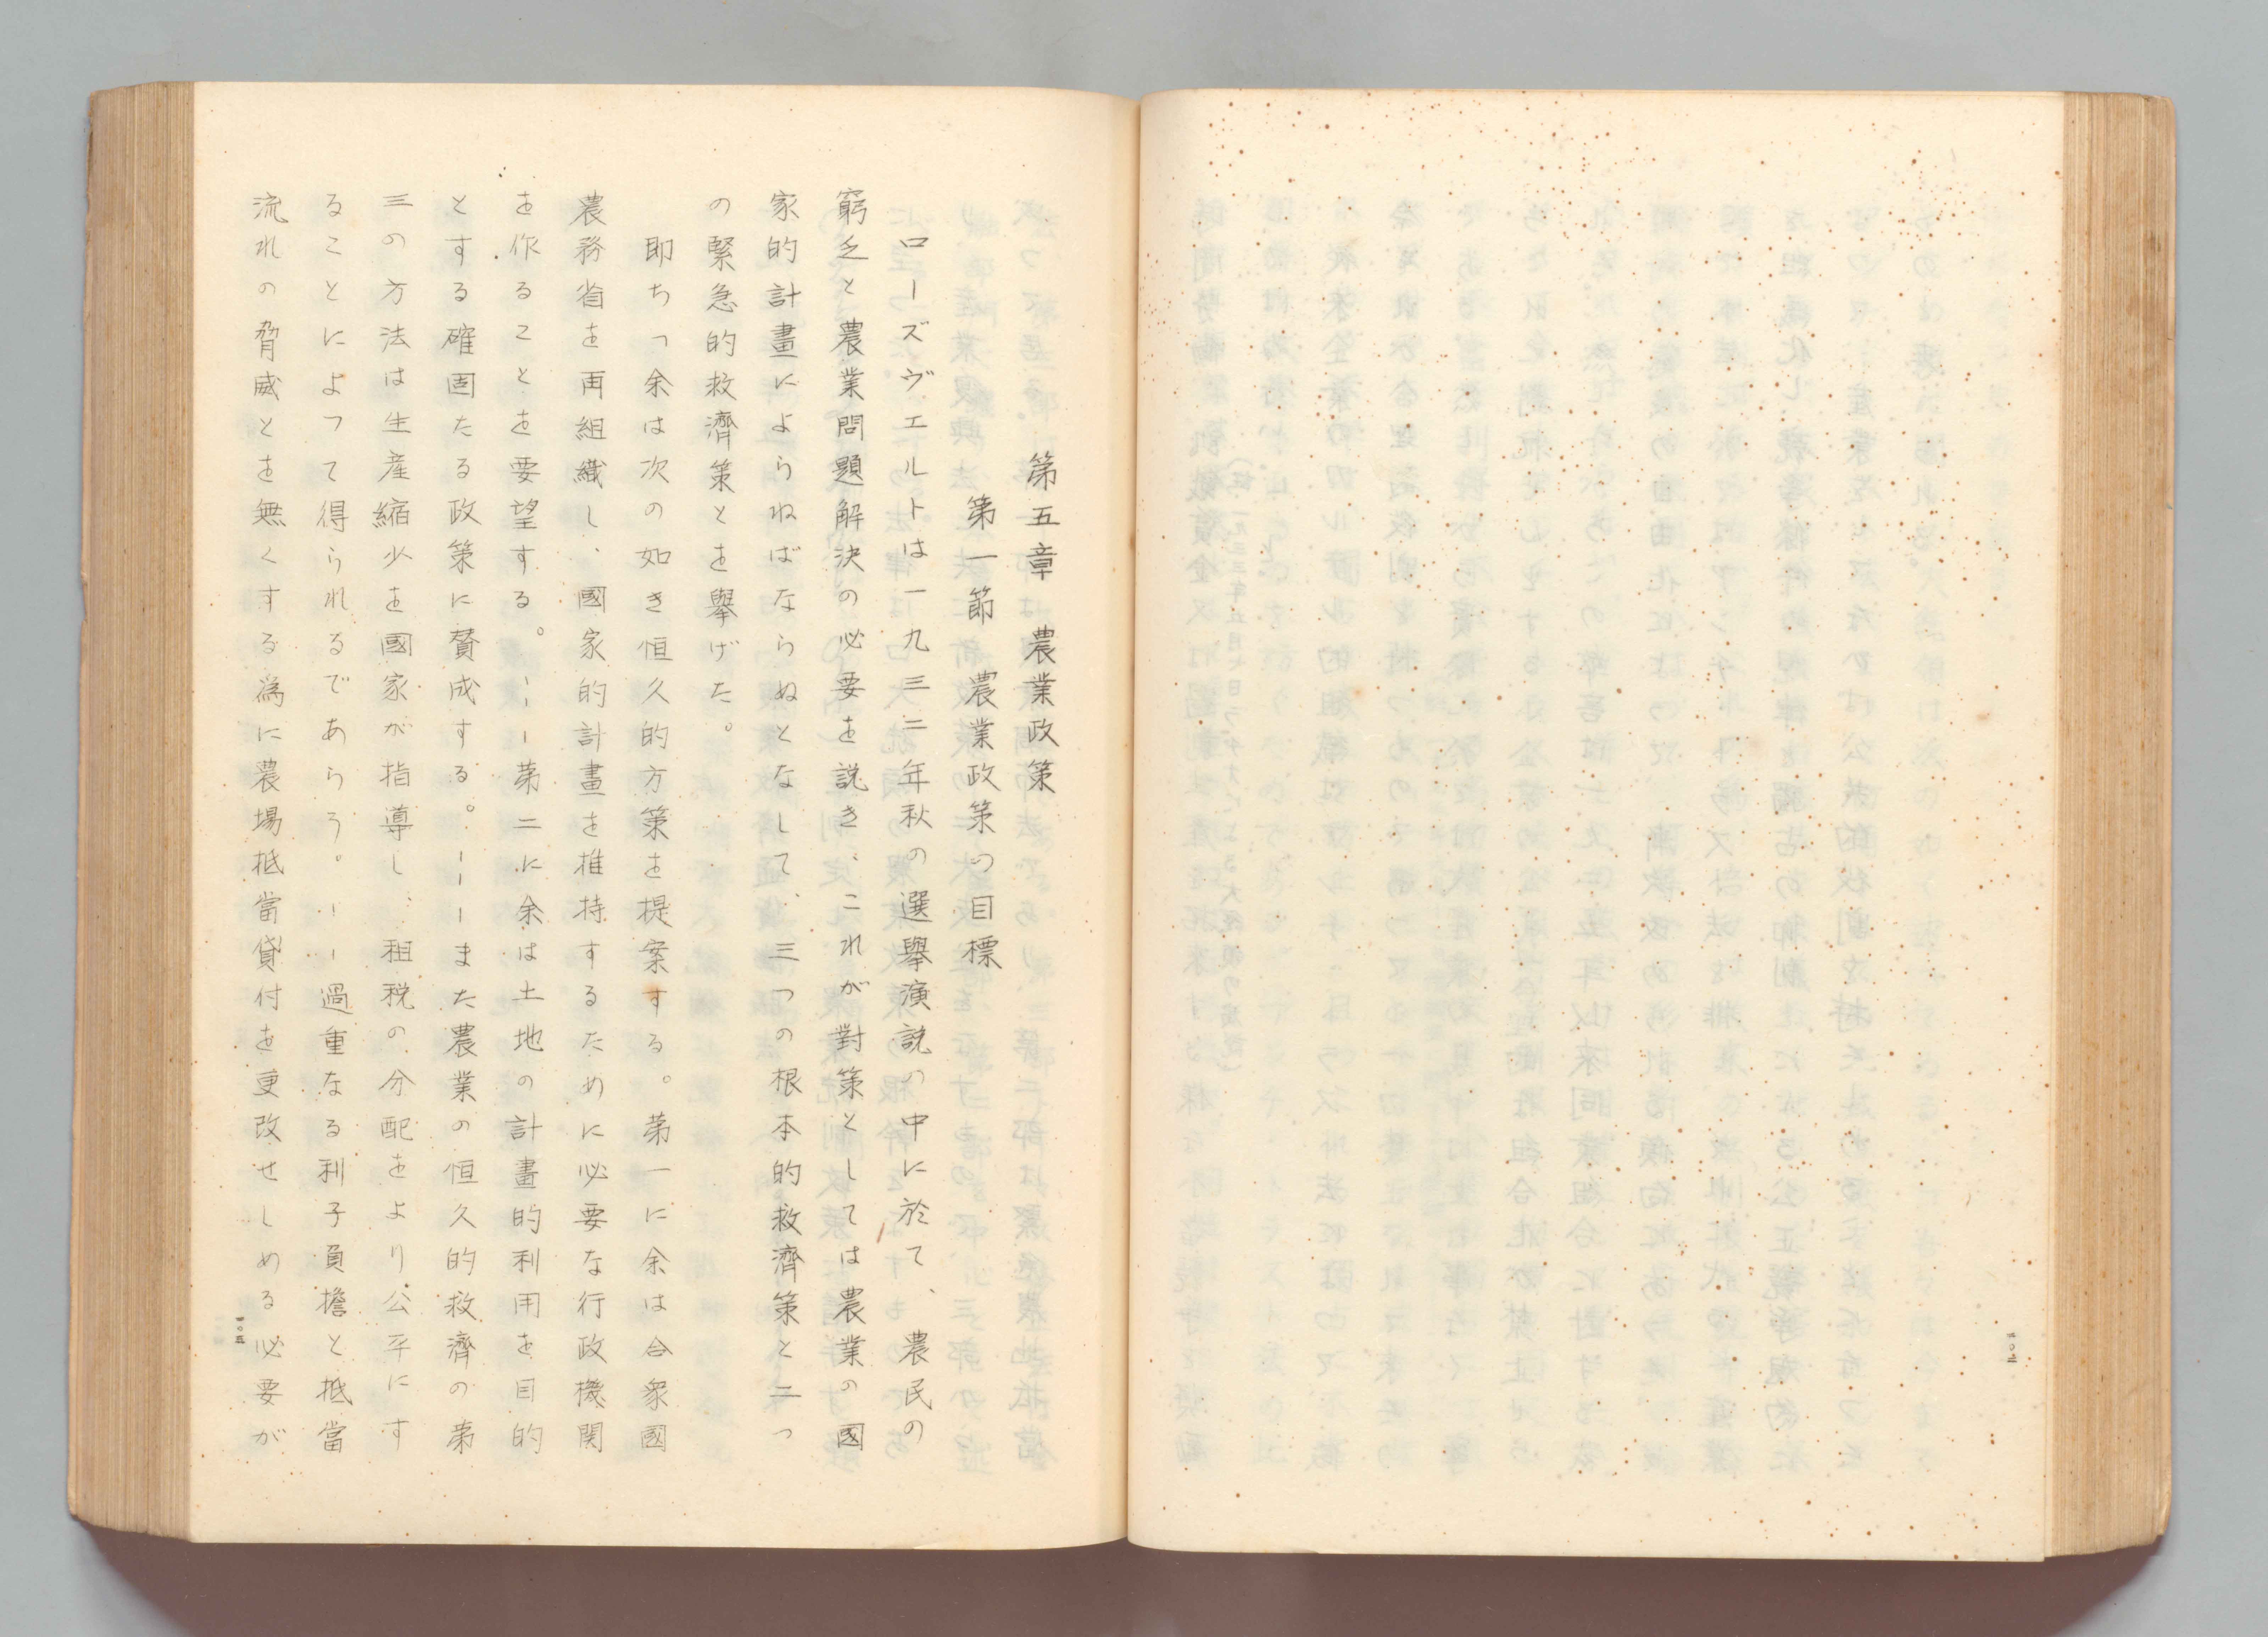 第五章　農業政策
第一節　農業政策の目標
ローズヴエルトは一九三二年秋の選擧演説の中に於て、農民の
窮乏と農業問題解決の必要を説き、これが對策としては農業の國
家的計畫によらねばならぬとなして、三つの根本的救濟策と二つ
の緊急的救濟策とを擧げた。
即ち「余は次の如き恒久的方策を提案する。第一に余は合衆國
農務省を再組織し、國家的計畫を推持するために必要な行政機関
を作ることを要望する。ーーー第二に余は土地の計畫的利用を目的
とする確固たる政策に賛成する。ーーーまた農業の恒久的救濟の第
三の方法は生産縮少を國家が指導し、租税の分配をより公平にす
ることによつて得られるであらう。ーーー過重なる利子負擔と抵當
流れの脅威とを無くする為に農場抵當貸付を更改せしめる必要が